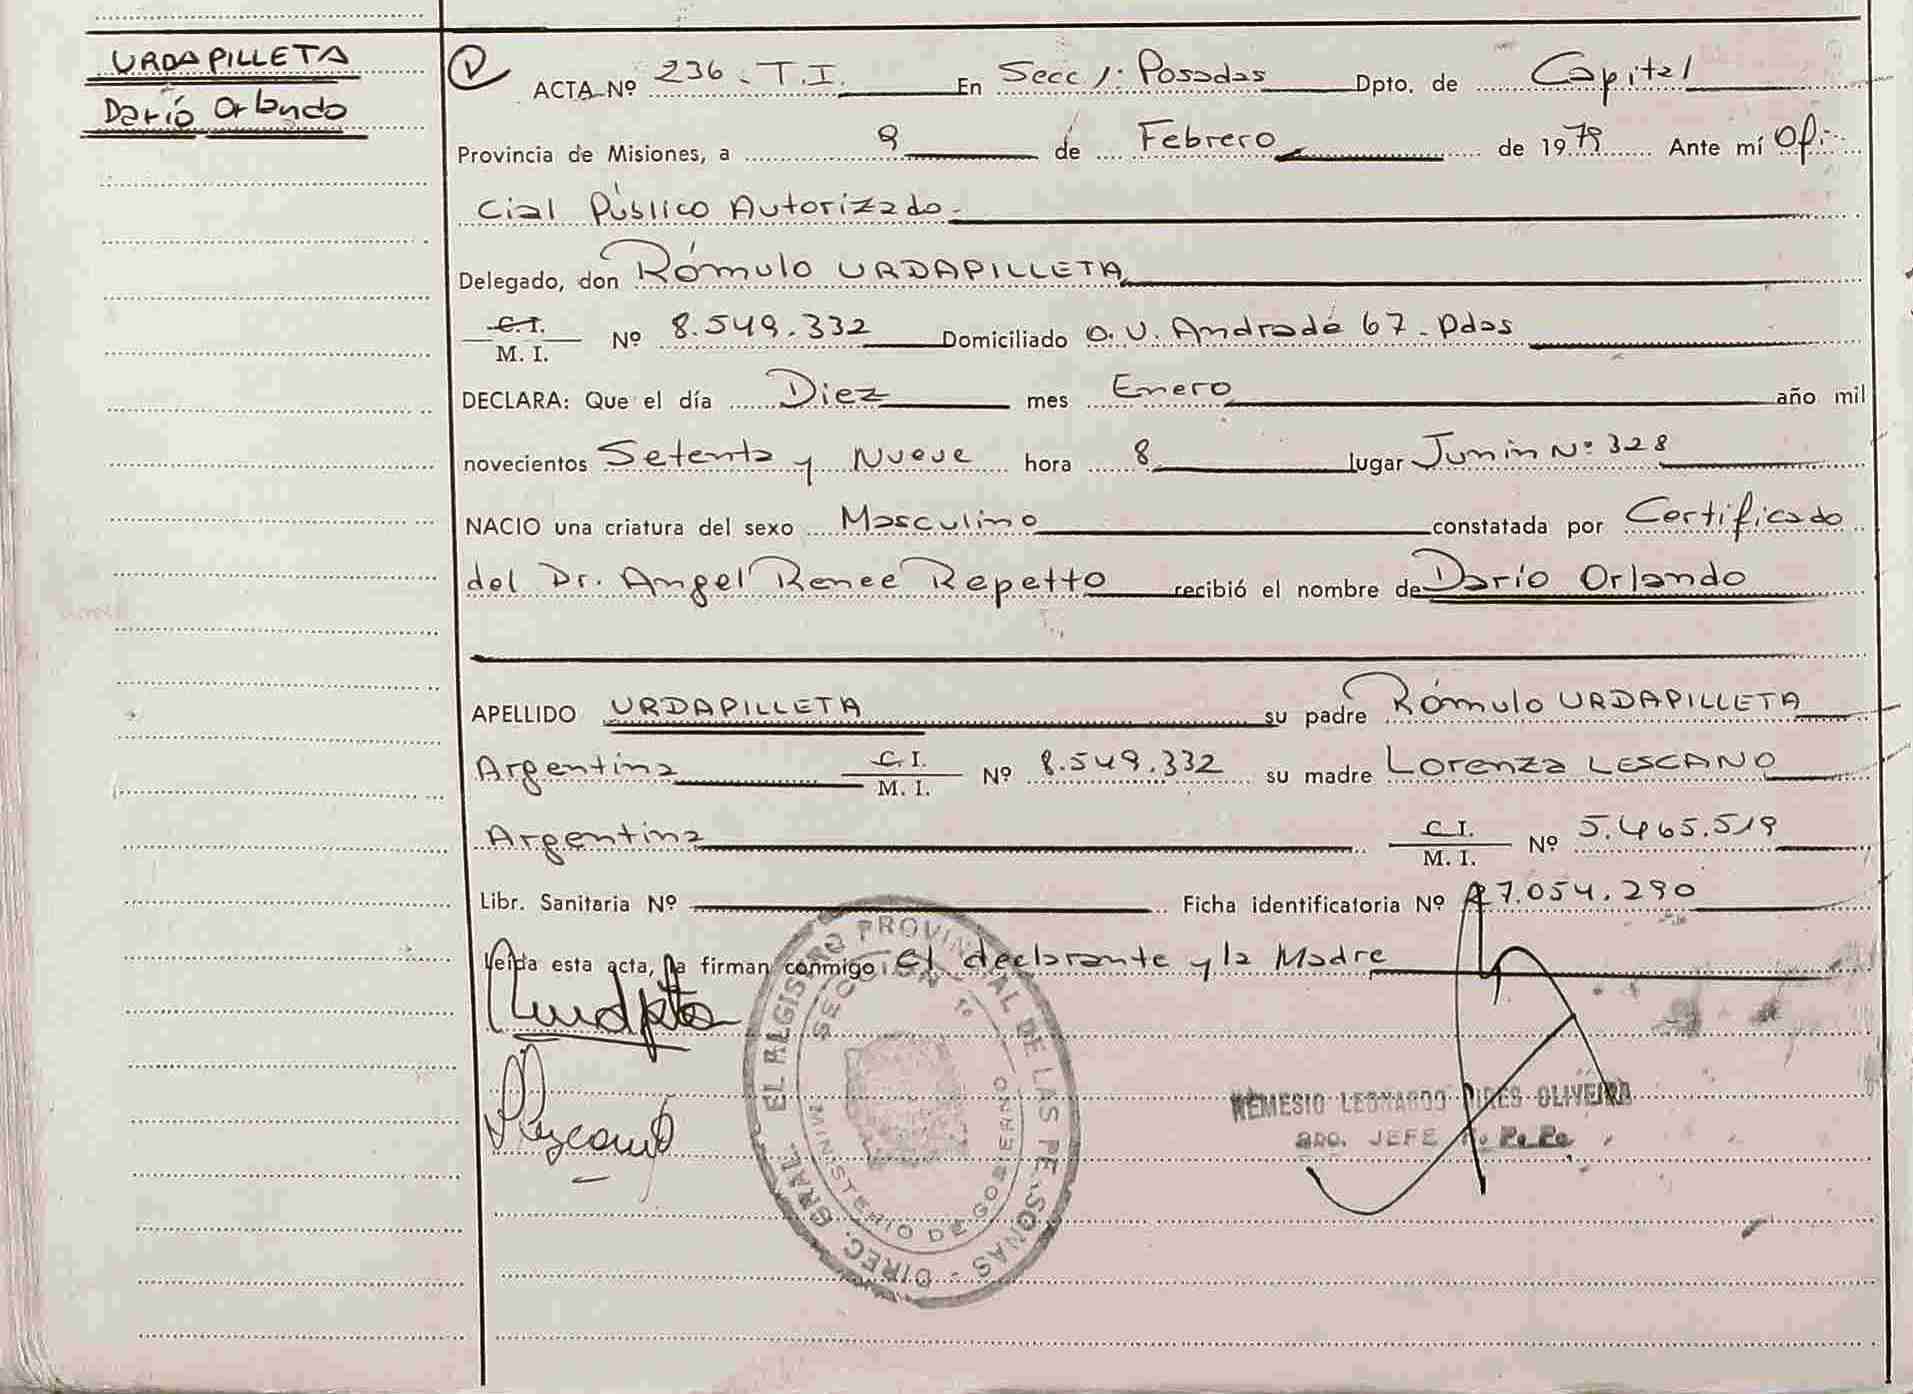 URDAPILLETA
Darío Orlando
ACTA Nº 236. T.I. En Secc 1: Posadas Dpto. de Capital
Provincia de Misiones, a 9 de Febrero de 1979 Ante mí Ofi-
cial Público Autorizado.
Delegado, don Rómulo URDAPILLETA
C.I.
M. I. Nº 8.549.332 Domiciliado O. V. Andrade 67. Pdas
DECLARA: Que el día Diez mes Enero año mil
novecientos Setenta y Nueve hora 8 lugar Junin Nº 328
NACIO una criatura del sexo Masculino constatada por Certificado
del Dr. Angel Renee Repetto recibió el nombre de Darío Orlando
APELLIDO URDAPILLETA su padre Rómulo URDAPILLETA
Argentina C.I.
M. I. Nº 8.549.332 su madre Lorenza LESCANO
Argentina C.I.
M. I. Nº 5.465.519
Libr. Sanitaria Nº Ficha identificatoria Nº 27.054.290
Leída esta acta, la firman conmigo: El declarante y la Madre
DIREC. GRAL. EL REGISTRO PROVINCIAL DE LAS PERSONAS -
SECCION 1º
MINISTERIO DE GOBIERNO
NEMESIO LEONARDO PIRES OLIVEIRA
2DO. JEFE